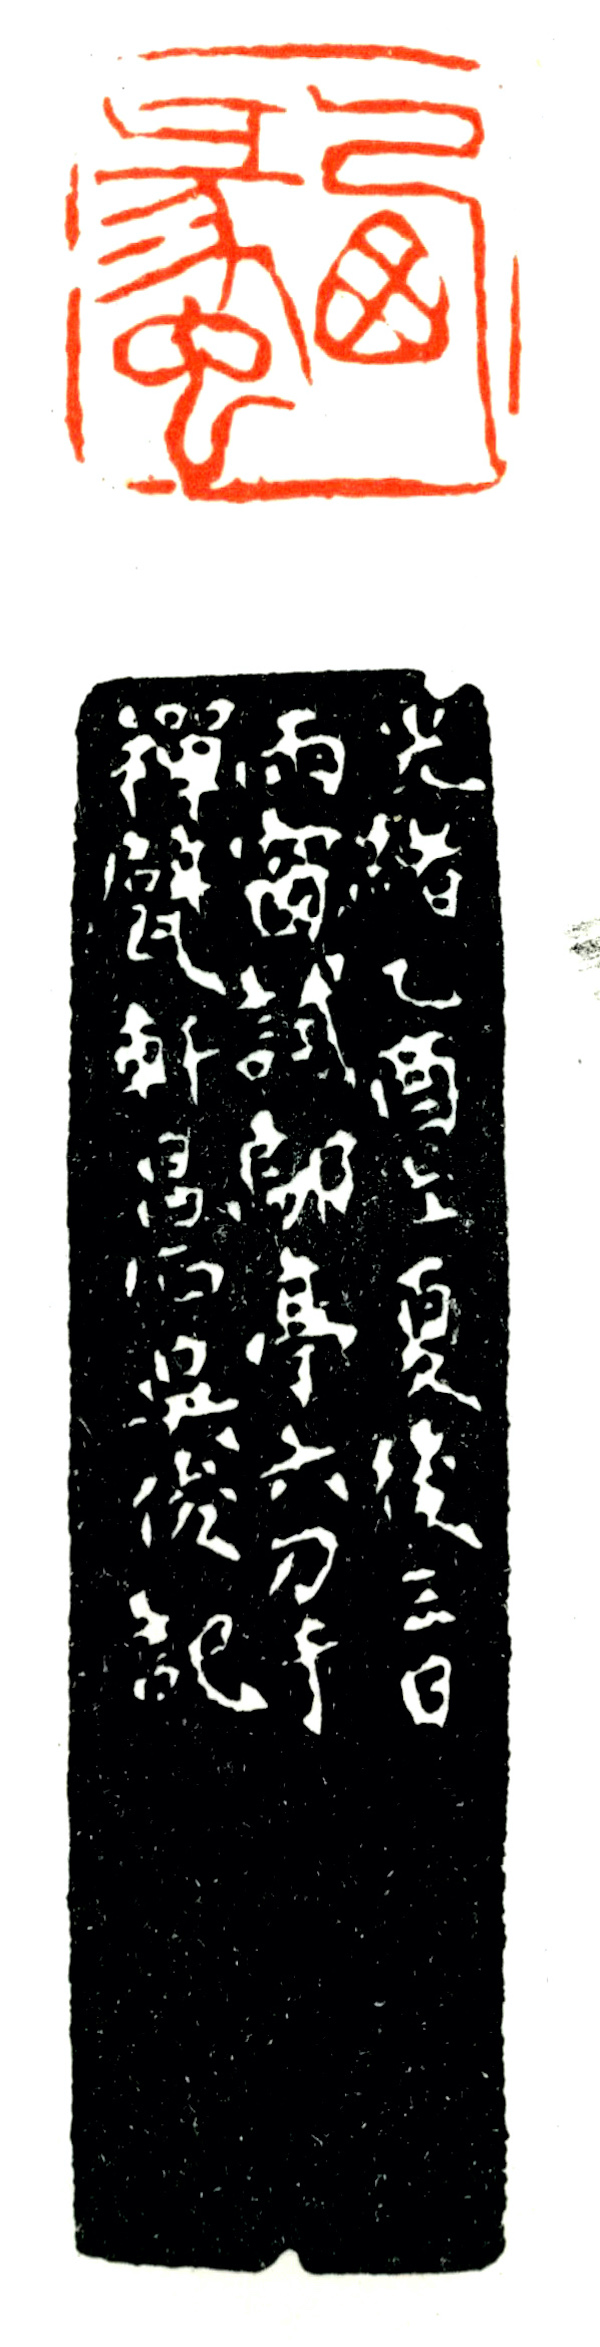 光緒乙酉立夏後三日
雨窗試郋亭六刀于
禪甓軒昌石吳俊記